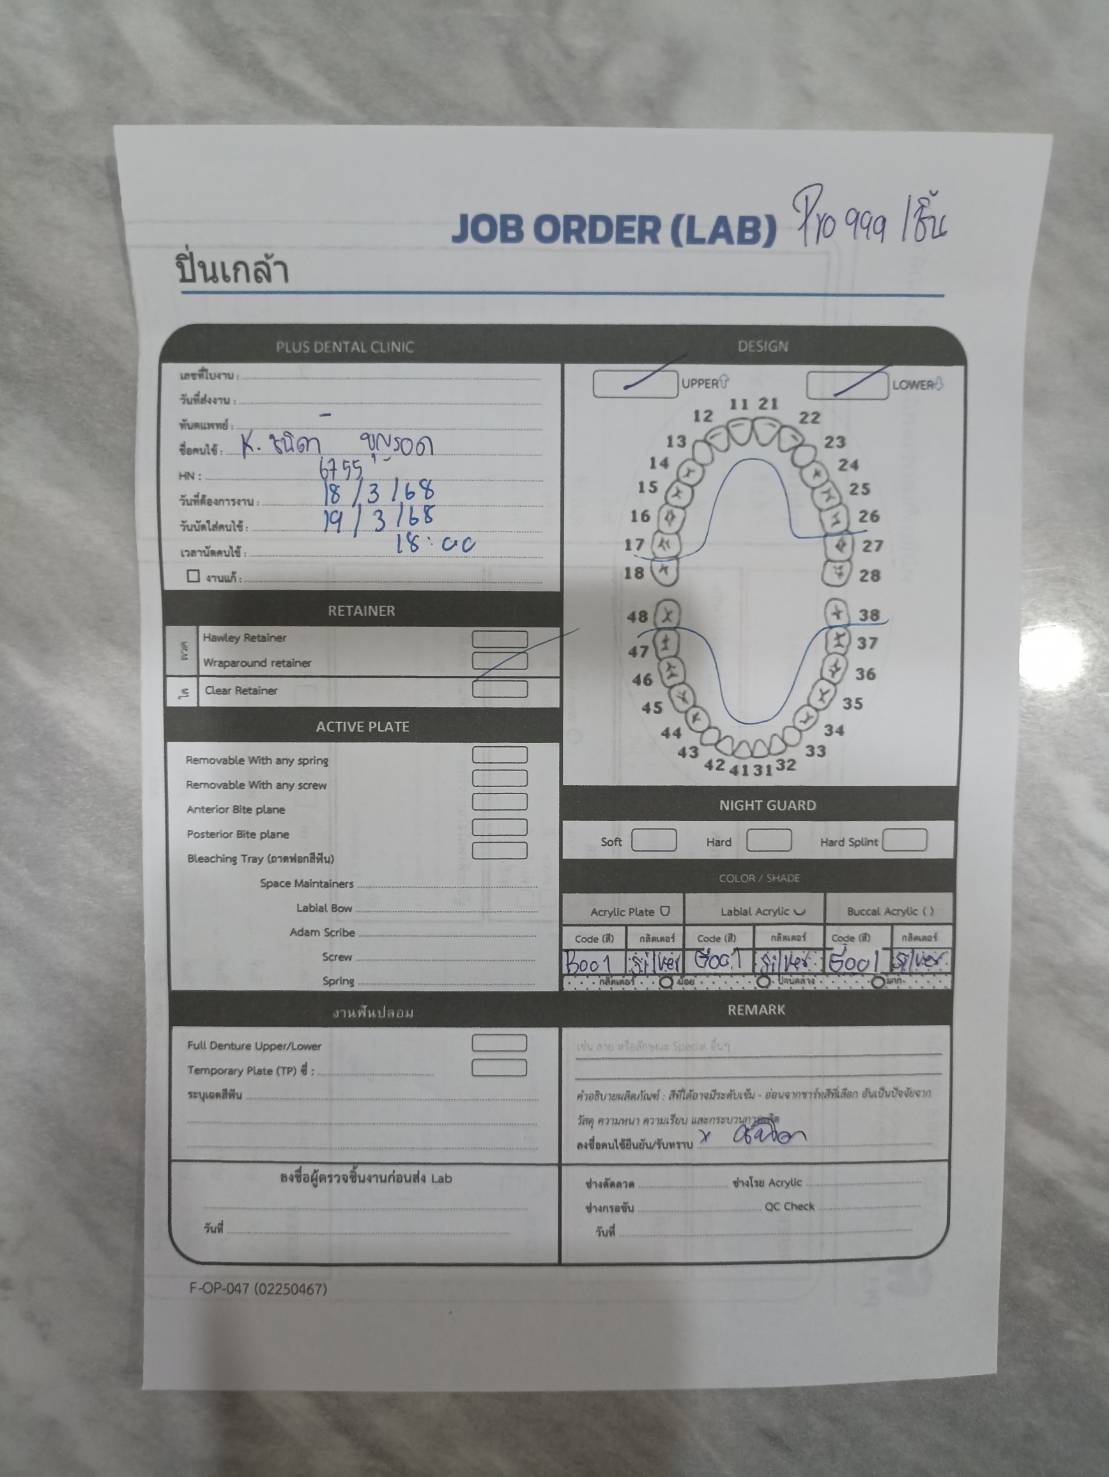 JOB ORDER (LAB) Pro 999 /ชิ้น
ปิ่นเกล้า
PLUS DENTAL CLINIC
เลขที่ใบงาน :
วันที่ส่งงาน :
ทันตแพทย์ : -
ชื่อคนไข้ : K. ชนิดา บุญรอด
HN : 6755
วันที่ต้องการงาน : 18/3/68
วันนัดใส่คนไข้ : 19/3/68
เวลานัดคนไข้ : 18:00
งานแก้ :
RETAINER
ลวด
Hawley Retainer
Wraparound retainer
ใส
Clear Retainer
ACTIVE PLATE
Removable With any spring
Removable With any screw
Anterior Bite plane
Posterior Bite plane
Bleaching Tray (ถาดฟอกสีฟัน)
Space Maintainers
Labial Bow
Adam Scribe
Screw
Spring
งานฟันปลอม
Full Denture Upper/Lower
Temporary Plate (TP) ซี่ :
ระบุเฉดสีฟัน
ลงชื่อผู้ตรวจชิ้นงานก่อนส่ง Lab
วันที่
DESIGN
UPPER LOWER
11 21
12 22
13 23
14 24
15 25
16 26
17 27
18 28
48 38
47 37
46 36
45 35
44 34
43 33
42 41 31 32
NIGHT GUARD
Soft Hard Hard Splint
COLOR / SHADE
Acrylic Plate Labial Acrylic Buccal Acrylic ( )
Code (สี) กลิตเตอร์ Code (สี) กลิตเตอร์ Code (สี) กลิตเตอร์
Silver Silver Silver
กลิตเตอร์ น้อย ปานกลาง มาก
REMARK
เช่น ลาย หรือลักษณะ Special อื่นๆ
คำอธิบายผลิตภัณฑ์ : สีที่ได้อาจมีระดับเข้ม - อ่อนจากชาร์ทสีที่เลือก อันเป็นปัจจัยจาก
วัสดุ ความหนา ความเรียบ และกระบวนการผลิต
ลงชื่อคนไข้ยืนยัน/รับทราบ x
ช่างดัดลวด ช่างโรย Acrylic
ช่างกรอขัด QC Check
วันที่
F-OP-047 (02250467)